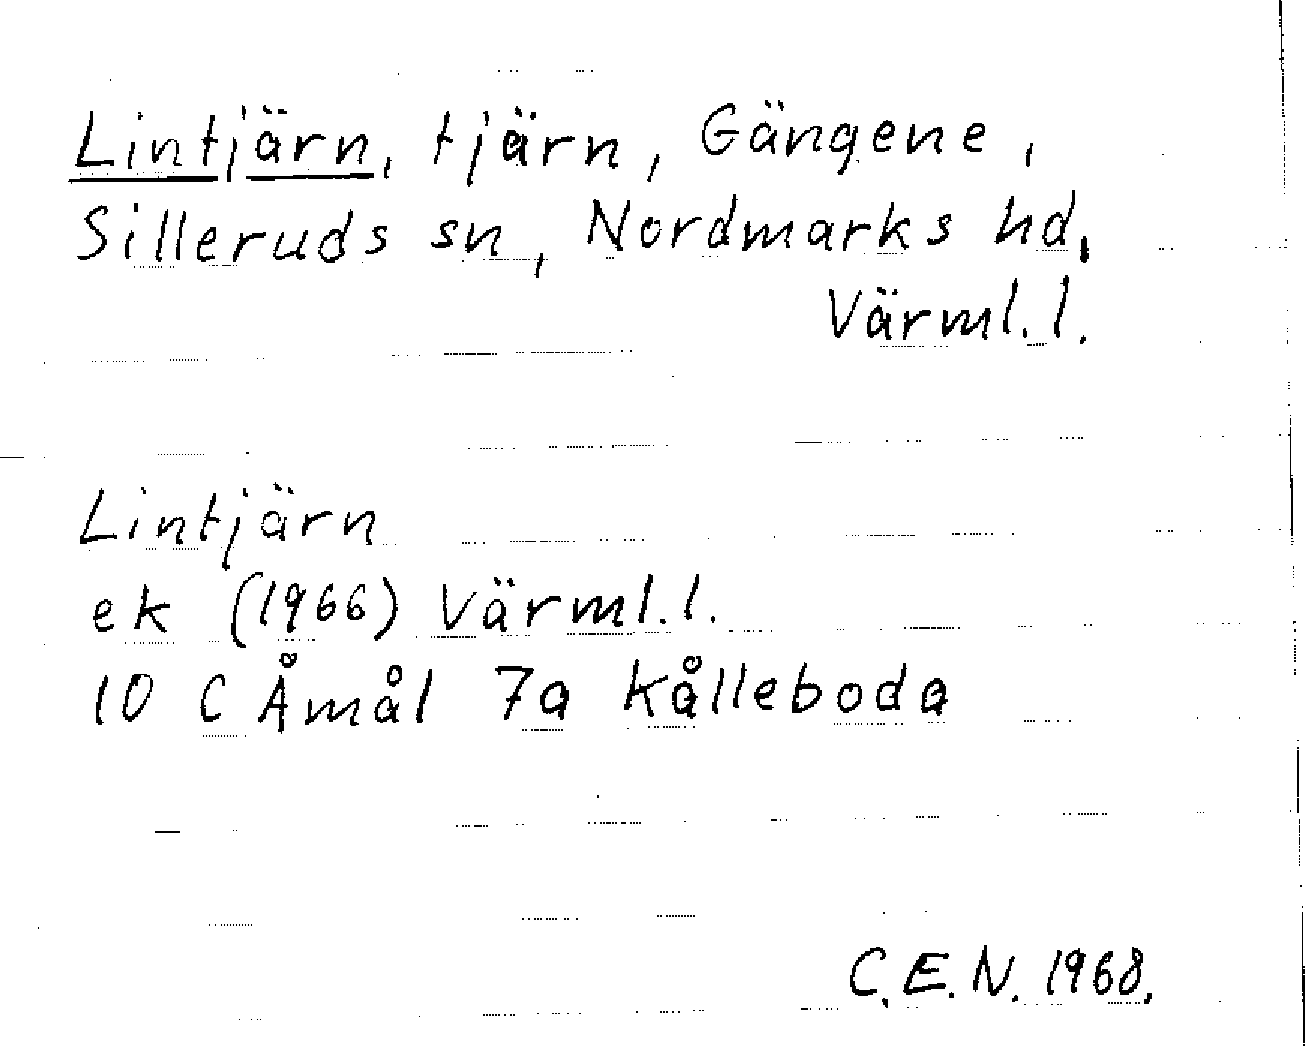 Lintjärn, tjärn, Gängene,
Silleruds sn, Nordmarks hd,
Värml. l.
Lintjärn
ek (1966) Värml. l.
10 C Åmål 7a Kålleboda
C.E.N. 1968.